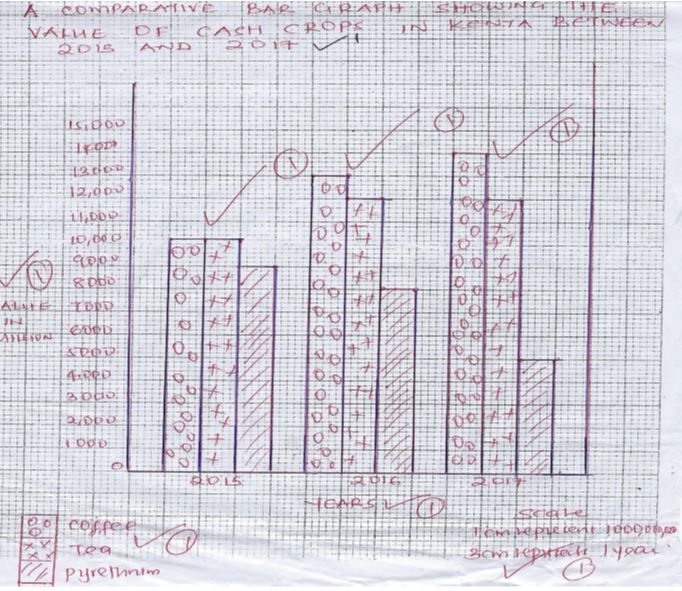 A COMPARATIVE BAR GRAPH SHOWING THE
VALUE OF CASH CROPS IN KENYA BETWEEN
2015 AND 2017 1
15,000
14000
13000
12,000
11,000
10,000
9000
8000
7000
6000
5000
4.000
3.000
2,000
1000
0
1
1
1
1
VALUE
IN
MILLION
2015
2016
2017
YEARS 1
Scale
1cm represent 1000,000,000
3cm represent 1 year.
1
coffee
Tea
pyrethrum
1